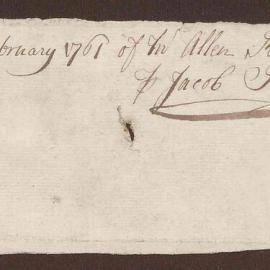 bruary 1761 of Mr Allen
p Jacob